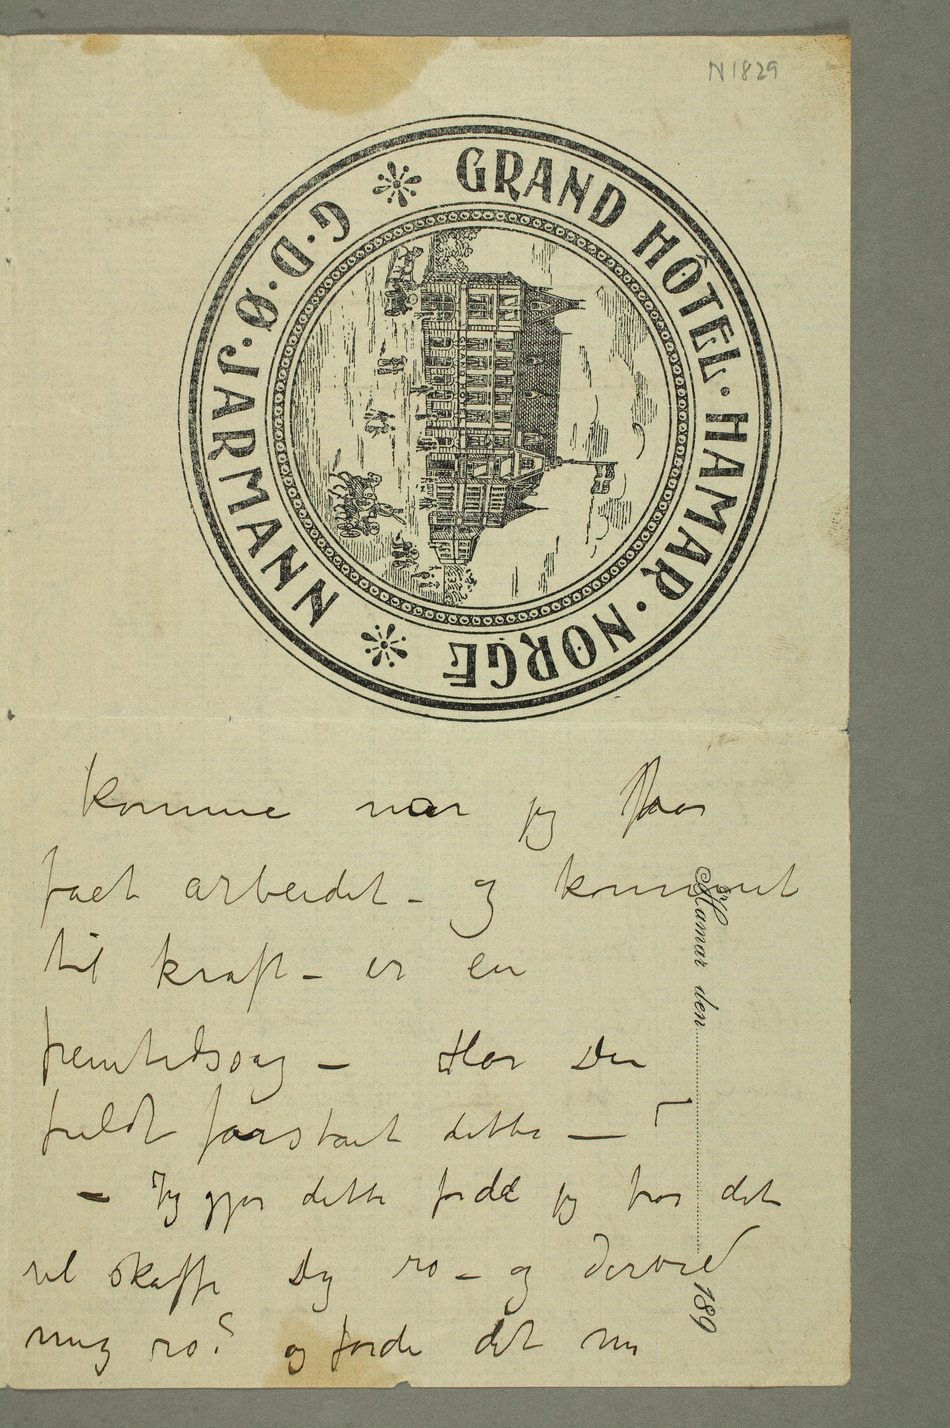 N 1829
GRAND HÔTEL · HAMAR · NORGE
G · D · Ø · JARMANN
Hamar den 189
komme naar jeg faar
faaet arbeidet – og kommet
til kraft – er en
fremtidssag – Har Du
fuldt forstaaet dette –
– Jeg gjør dette fordi jeg tror det
vil skaffe Dig ro – og derved
mig ro? og fordi det nu